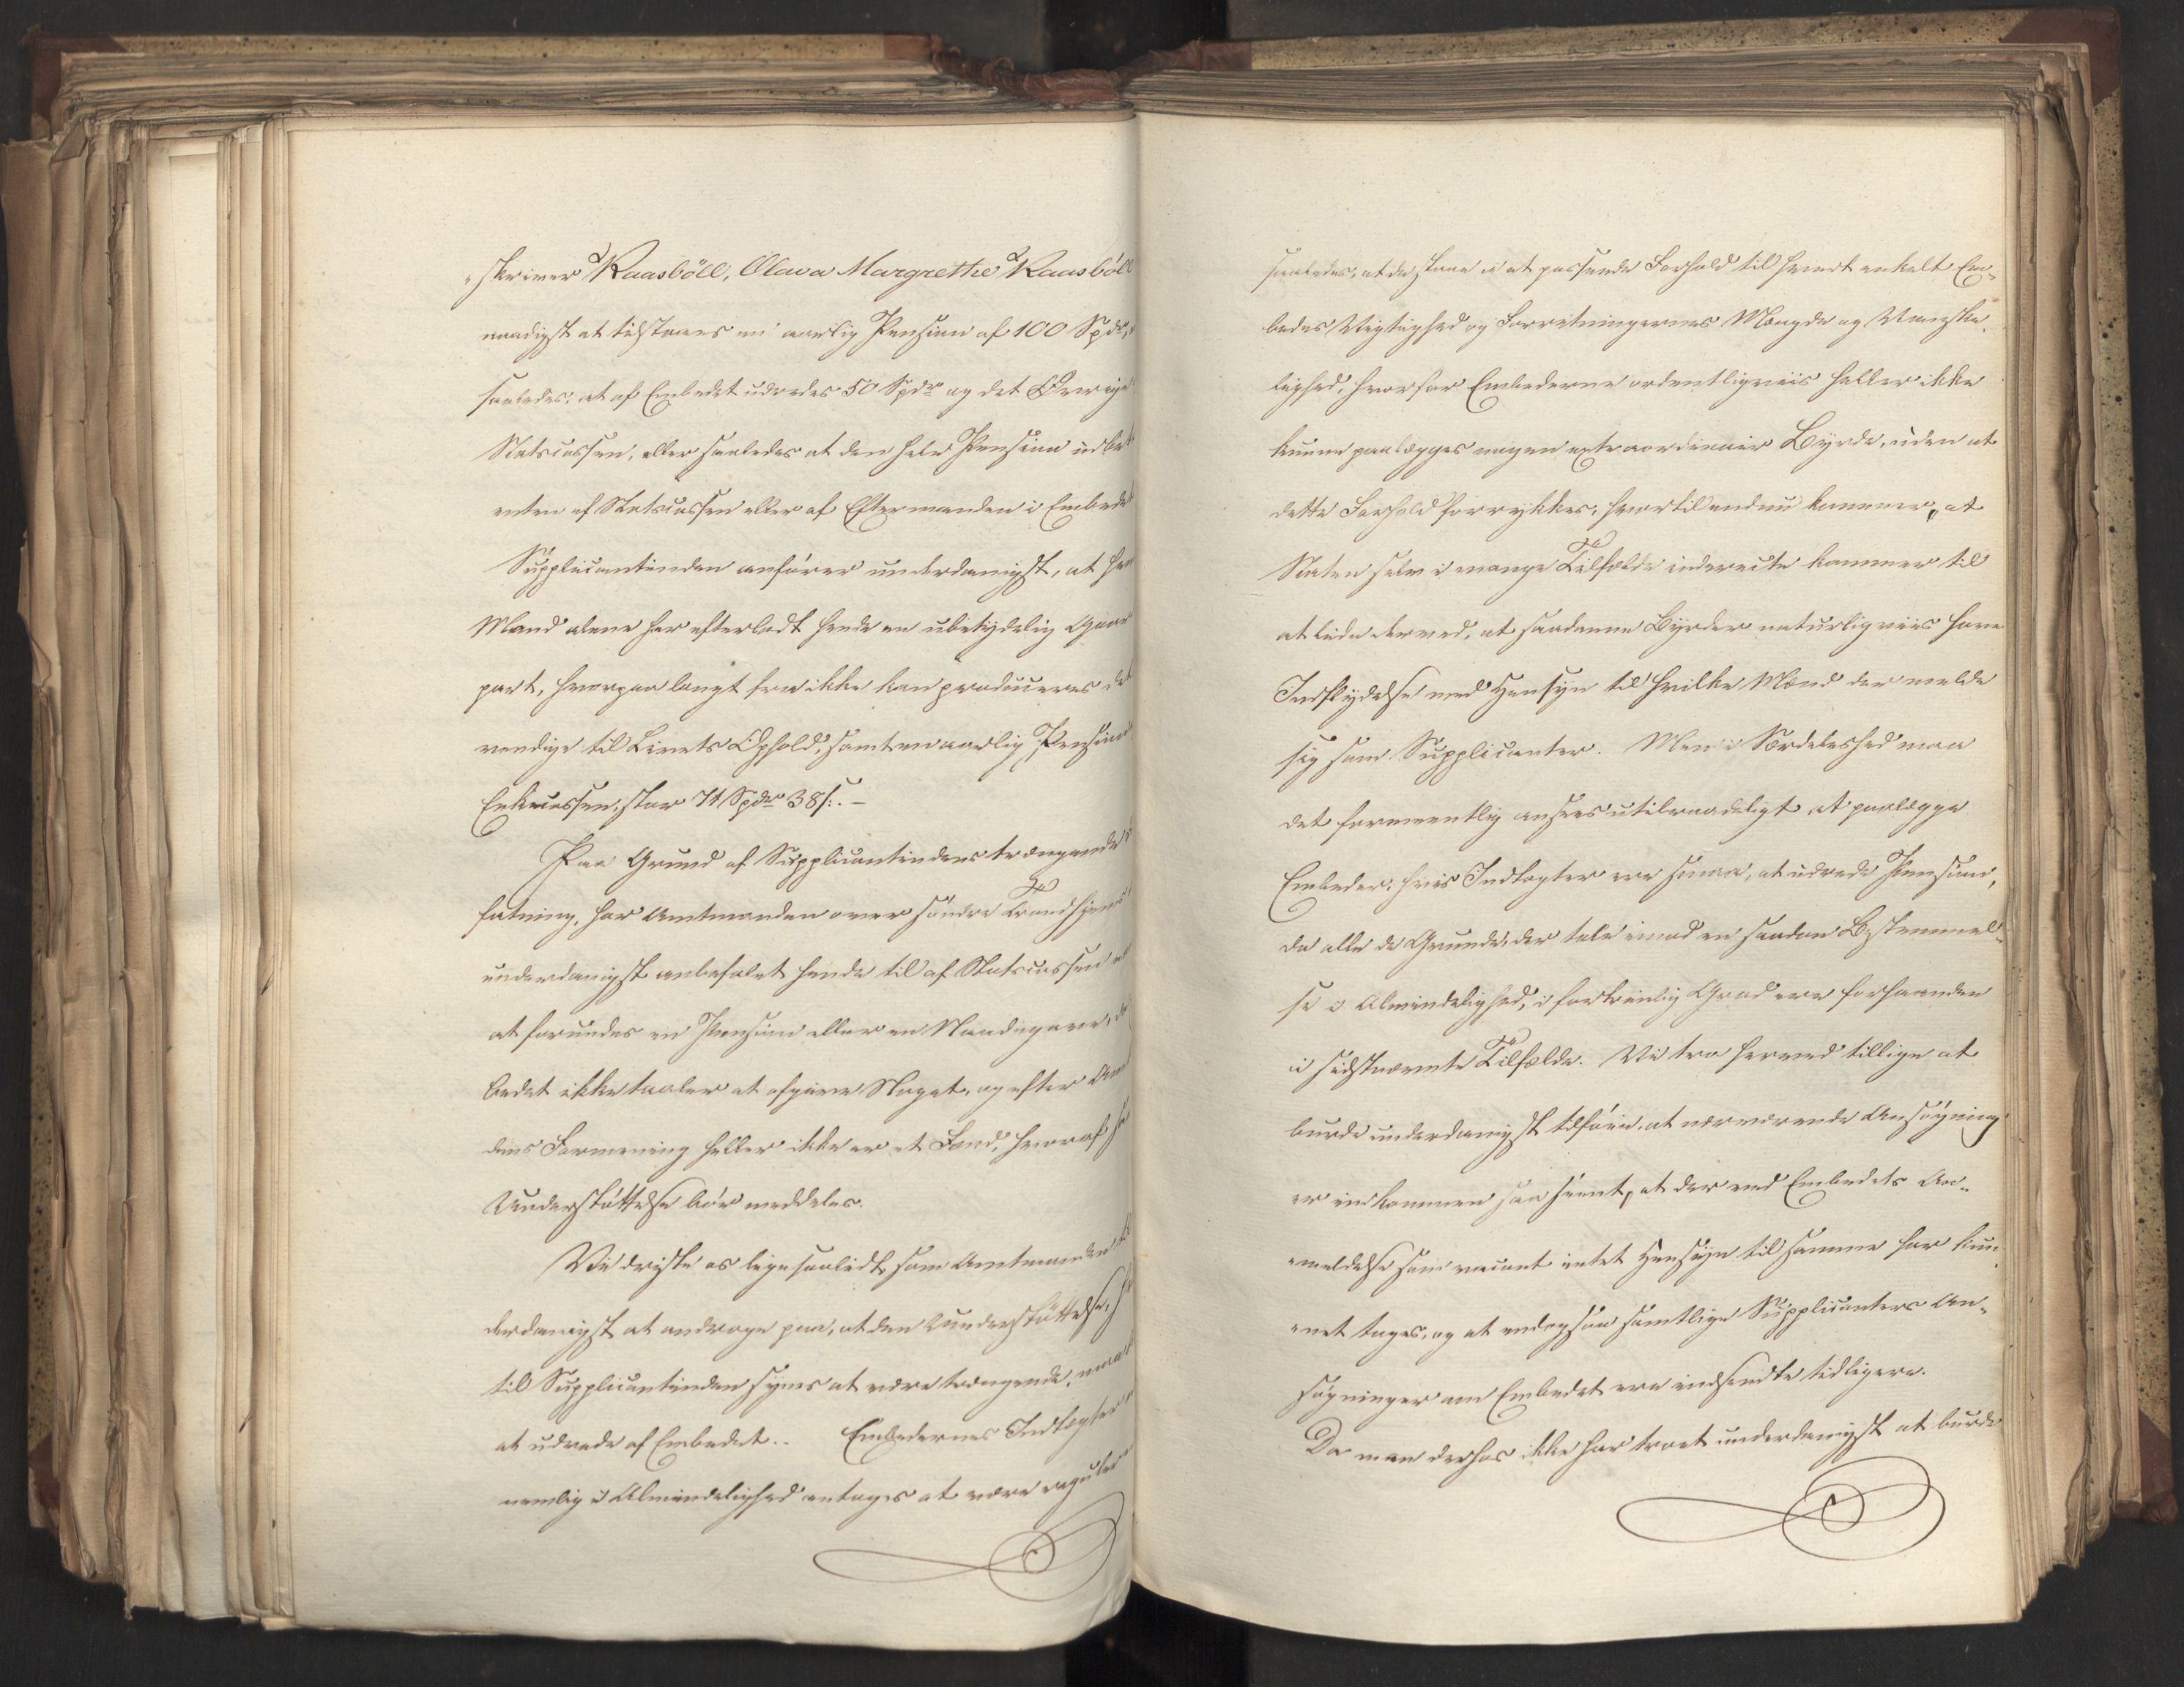 „skriver Raasböll, Olava Margrethe Raasböll
naadigst at tilstaaes en aarlig Pension af 100 Spdr,
saaledes: at af Embedet udredes 50 Spdr og det Øvrige
Statscassen, eller saaledes at den hele Pension udbet
enten af Statscassen eller af Eftermanden i Embedet
Supplicantinden anfører underdanigst, at hen
Mand alene har efterladt hende en ubetydelig Gaar
part, hvorpaa langt fra ikke kan produceres det
vendige til Livets Ophold, samt en aarlig Pension
Enkecassen, stor 71 Spdr 38 s. –
Paa Grund af Supplicantindens trængende
fatning, har Amtmanden over söndre Trondhjems
underdanigst anbefalet hende til af Statscassen
at forundes en Pension eller en Naadegave, da
bedet ikke taaler at afgive Noget, og efter Amt
dens Formening heller ikke er et Fond, hvoraf
Understøttelse bör meddeles.
Vi driste os ligesaalidt som Amtmanden
derdanigst at andrage paa, at den Understøttelse,
til Supplicantinden synes at være trængende, maa
at udrede af Embedet. – Embedernes Indtægter
nemlig i Almindelighed antages at være reguler
saaledes, at de staae i et passende Forhold til hvert enkelt Em„
bedes Vigtighed og Forretningernes Mængde og Vanske„
lighed, hvorfor Embederne ordentligviis heller ikke
kunne paalægges nogen extraordinair Byrde, uden at
dette Forhold forrykkes, hvortil endnu kommer, at
Staten selv i mange Tilfælde indirecte kommer til
at lide derved, at saadanne Byrder naturligviis have
Indflydelse med Hensyn til hvilke Mænd der melde
sig som Supplicanter. Men i Særdeleshed maa
det formeentlig ansees utilraadeligt at paalægge
Embeder, hvis Indtægter ere smaa, at udrede Pension,
da alle de Grunde, der tale imod en saadan Bestemmel„
se i Almindelighed, i fortrinlig Grad ere forhaanden
i sidstnævnte Tilfælde. Vi troe herved tillige at
burde underdanigst tilföie, at nærværende Ansögning
er indkommen saa séent, at der ved Embedets An„
„meldelse som vacant intet Hensyn til samme har kun„
„net tages, og at endogsaa samtlige Supplicanters An„
søgninger om Embedet ere indsendte tidligere.
Da man derhos ikke har troet underdanigst at burde